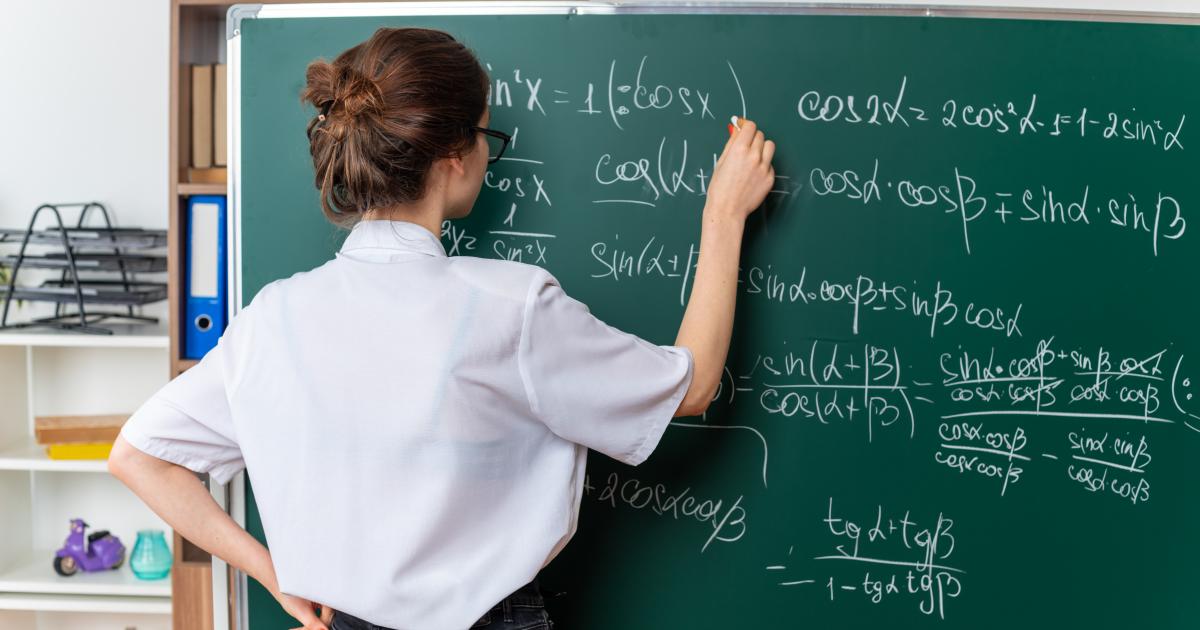 in²x = 1 (:cosx)
cos2α = 2cos²α-1 = 1-2sin²α
1/cos x
cos(α± = cosα·cosβ ∓ sinα·sinβ
2x = 1/sin²x
sin(α± = sinα·cosβ ± sinβ cosα
) = sin(α+β)/cos(α+β) = (sinα·cosβ/cosα·cosβ + sinβ·cosα/cosα·cosβ)/(cosα·cosβ/cosα·cosβ - sinα·sinβ/cosα·cosβ) (:
+ 2cosαcosβ
= (tgα+tgβ)/(1-tgα tgβ)